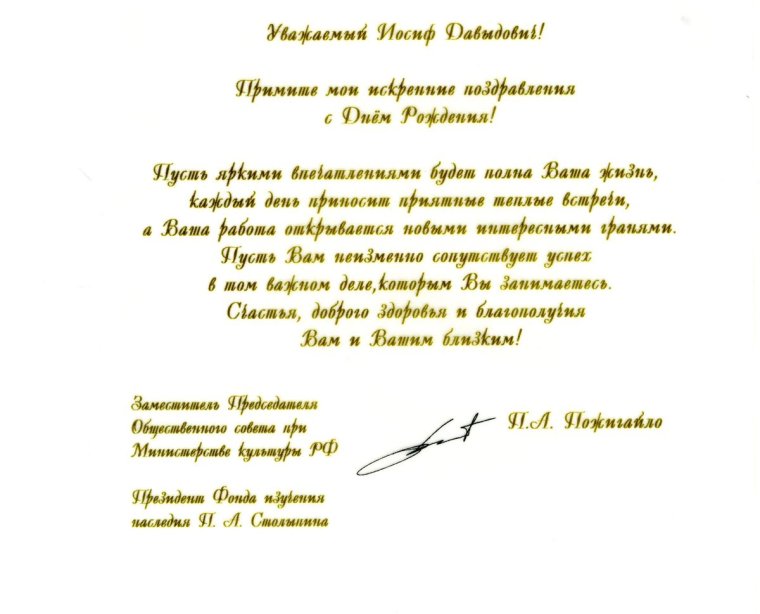 Уважаемый Иосиф Давыдович!
Примите мои искренние поздравления
с Днём Рождения!
Пусть яркими впечатлениями будет полна Ваша жизнь,
каждый день приносит приятные теплые встречи,
а Ваша работа открывается новыми интересными гранями.
Пусть Вам неизменно сопутствует успех
в том важном деле,которым Вы занимаетесь.
Счастья, доброго здоровья и благополучия
Вам и Вашим близким!
Заместитель Председателя
Общественного совета при
Министерстве культуры РФ
П.А. Пожигайло
Президент Фонда изучения
наследия П. А. Столыпина